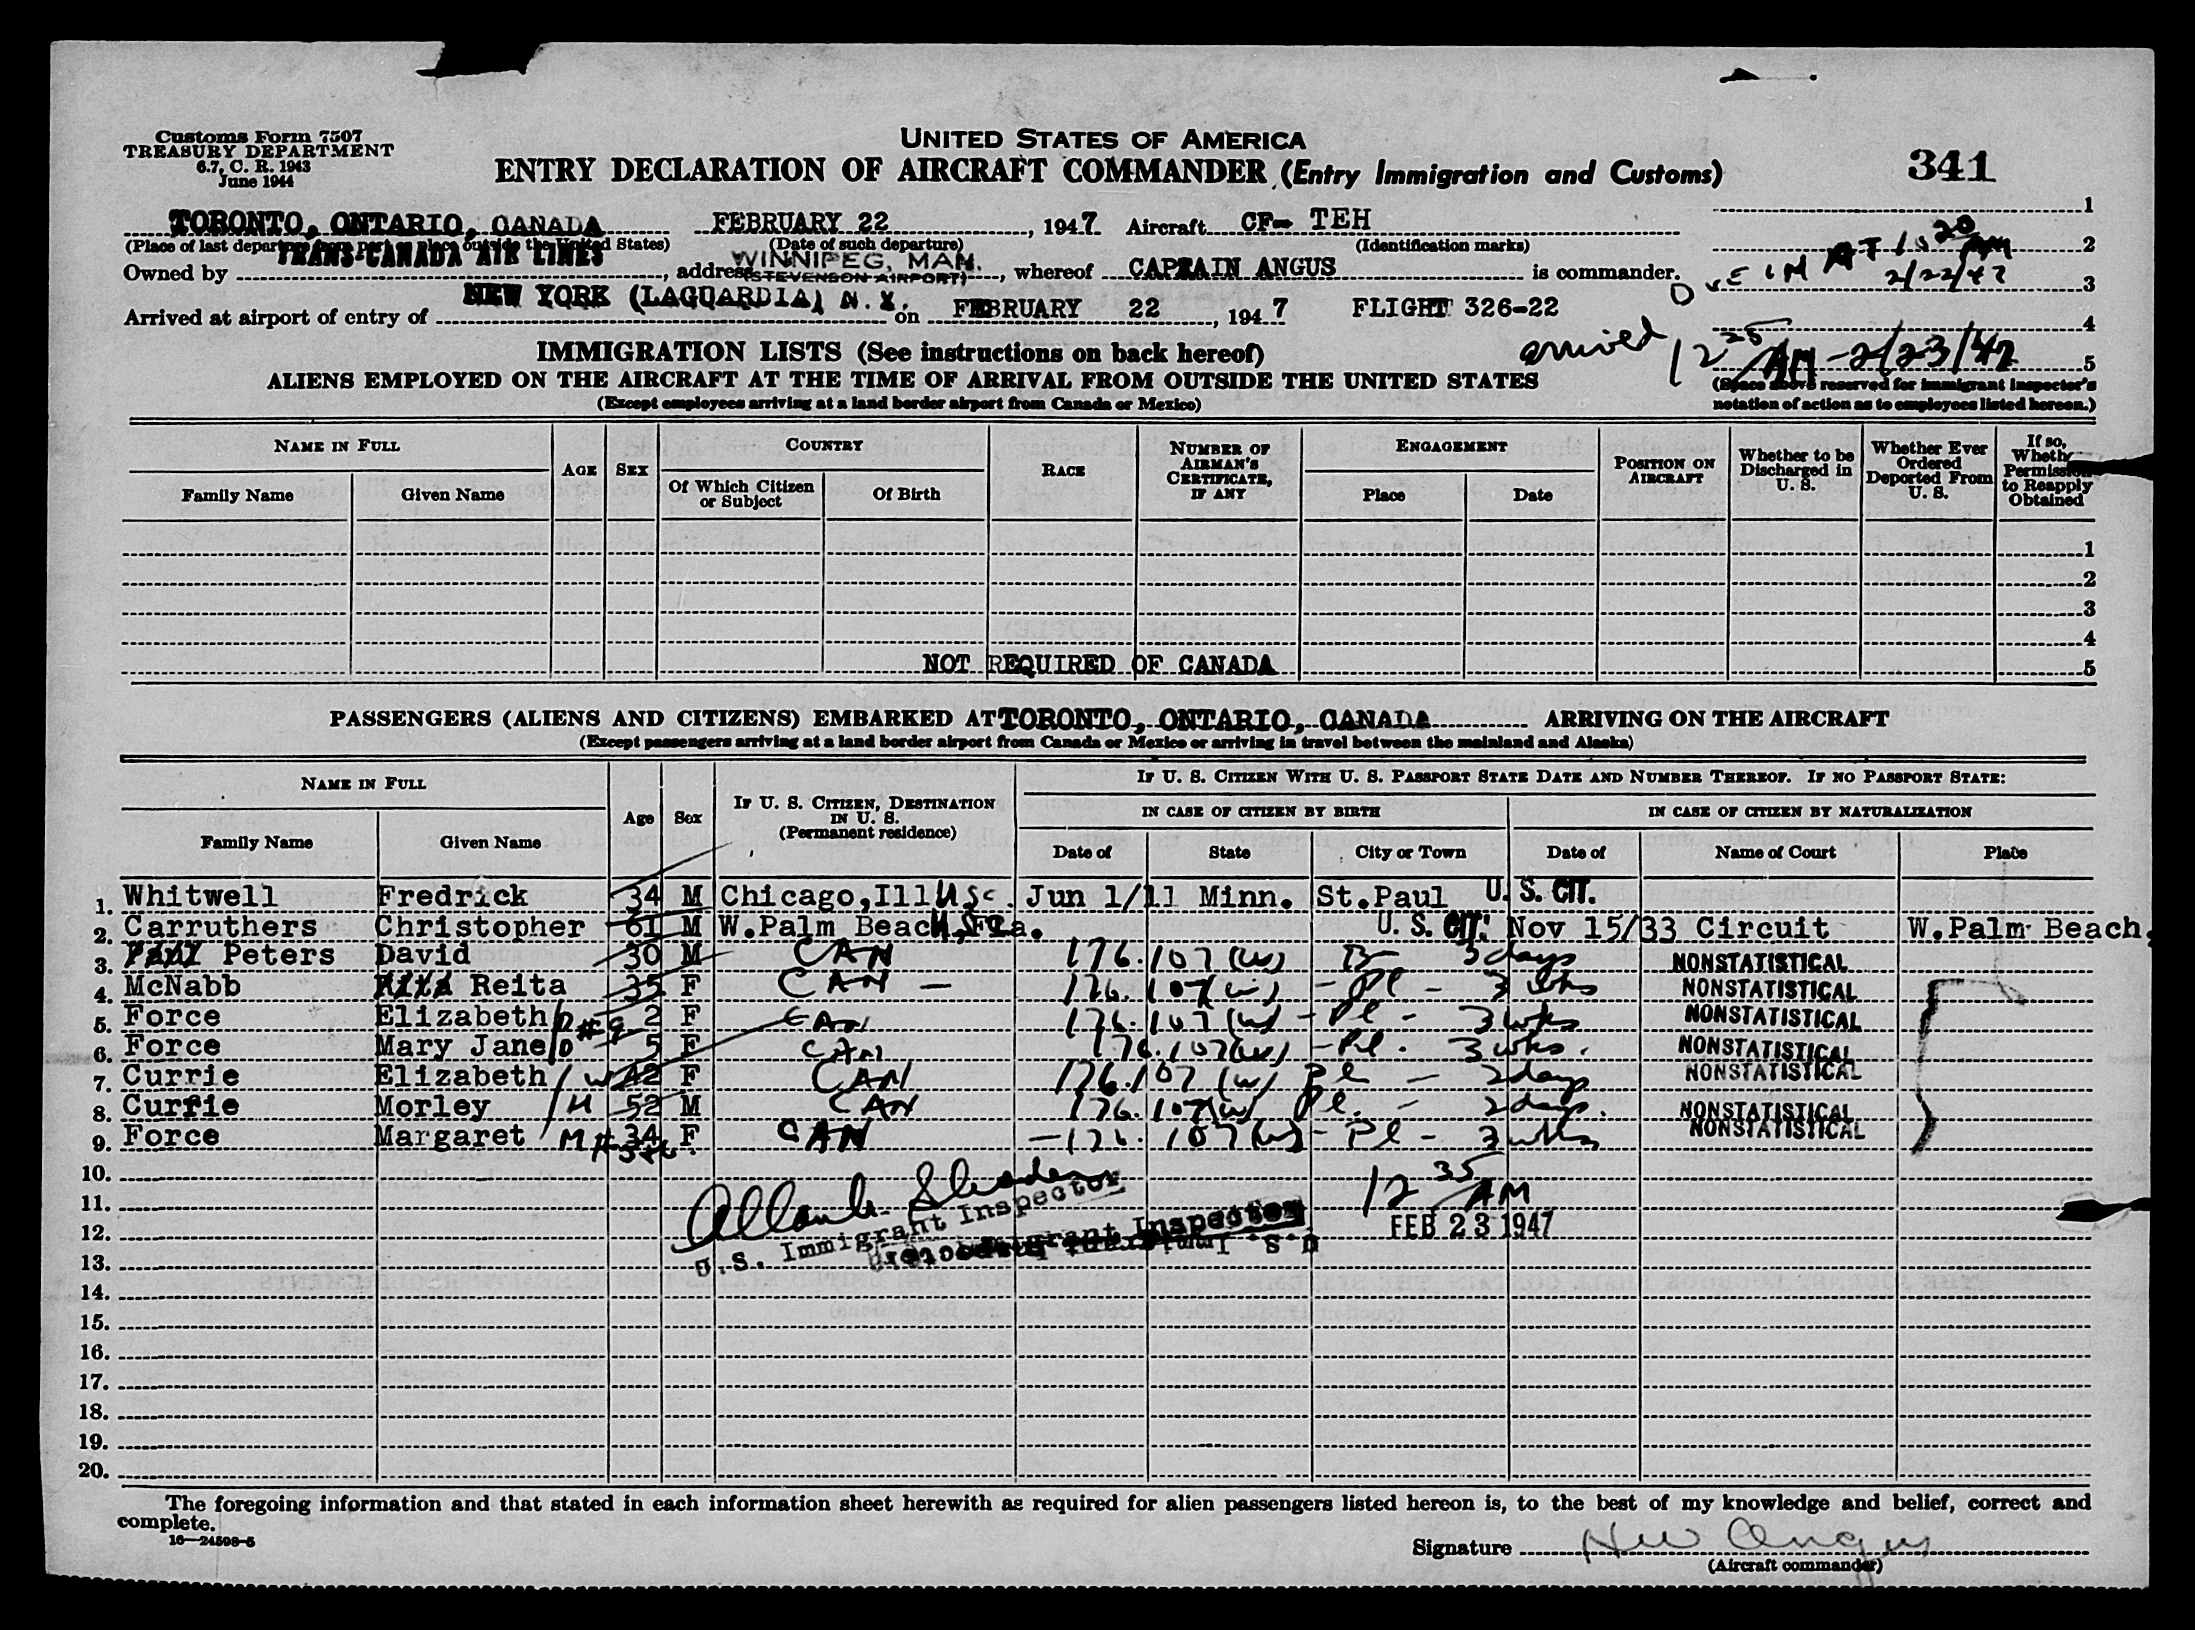 Customs Form 7507
TREASURY DEPARTMENT
6.7, C. R. 1943
June 1944
UNITED STATES OF AMERICA
ENTRY DECLARATION OF AIRCRAFT COMMANDER (Entry Immigration and Customs)
341
TORONTO, ONTARIO, CANADA FEBRUARY 22, 1947 Aircraft CF- TEH 1
(Place of last departure from port or place outside the United States) (Date of such departure) (Identification marks) 2
TRANS-CANADA AIR LINES WINNIPEG, MAN.
Owned by , address (STEVENSON AIRPORT), whereof CAPTAIN ANGUS is commander. 3
AT 10 20 PM
2/22/47
NEW YORK (LAGUARDIA) N.Y.
Arrived at airport of entry of on FEBRUARY 22, 1947 FLIGHT 326-22 4
arrived 12 25 AM - 2/23/47 5
IMMIGRATION LISTS (See instructions on back hereof)
ALIENS EMPLOYED ON THE AIRCRAFT AT THE TIME OF ARRIVAL FROM OUTSIDE THE UNITED STATES
(Space above reserved for immigrant inspector's
notation of action as to employees listed hereon.)
(Except employees arriving at a land border airport from Canada or Mexico)
NAME IN FULL
Family Name Given Name
AGE
SEX
COUNTRY
Of Which Citizen or Subject
Of Birth
RACE
NUMBER OF AIRMAN'S CERTIFICATE, IF ANY
ENGAGEMENT
Place Date
POSITION ON AIRCRAFT
Whether to be Discharged in U. S.
Whether Ever Ordered Deported From U. S.
If so, Whether Permission to Reapply Obtained
1
2
3
4
NOT REQUIRED OF CANADA 5
PASSENGERS (ALIENS AND CITIZENS) EMBARKED AT TORONTO, ONTARIO, CANADA ARRIVING ON THE AIRCRAFT
(Except passengers arriving at a land border airport from Canada or Mexico or arriving in travel between the mainland and Alaska)
NAME IN FULL
Family Name Given Name
Age
Sex
IF U. S. CITIZEN, DESTINATION IN U. S.
(Permanent residence)
IF U. S. CITIZEN WITH U. S. PASSPORT STATE DATE AND NUMBER THEREOF. IF NO PASSPORT STATE:
IN CASE OF CITIZEN BY BIRTH
IN CASE OF CITIZEN BY NATURALIZATION
Date of State City or Town Date of Name of Court Place
1. Whitwell Fredrick 34 M Chicago,Ill USC. Jun 1/11 Minn. St.Paul U. S. CIT.
2. Carruthers Christopher 61 M W.Palm Beach,Fla. U. S. CIT. Nov 15/33 Circuit W.Palm Beach,
3. Peters David 30 M CAN 176.107(w) B- 3 days NONSTATISTICAL
4. McNabb Reita 35 F CAN - 176.107(w) - Pl - 3 wks NONSTATISTICAL
5. Force Elizabeth D#9 2 F CAN 176.107(w) - Pl - 3 wks NONSTATISTICAL
6. Force Mary Jane D 5 F CAN 176.107(w) - Pl. 3 wks. NONSTATISTICAL
7. Currie Elizabeth /W 42 F CAN 176.107(w) Pl - 2 days NONSTATISTICAL
8. Currie Morley /H 52 M CAN 176.107(w) Pl. - 2 days. NONSTATISTICAL
9. Force Margaret M#5+6 34 F CAN - 176.107(w) - Pl - 3 wks NONSTATISTICAL
10.
11.
12.
13.
U. S. Immigrant Inspector
U. S. Immigrant Inspector
12 35 AM
FEB 23 1947
14.
15.
16.
17.
18.
19.
20.
The foregoing information and that stated in each information sheet herewith as required for alien passengers listed hereon is, to the best of my knowledge and belief, correct and
complete.
16—24598-5
Signature HW Angus
(Aircraft commander)